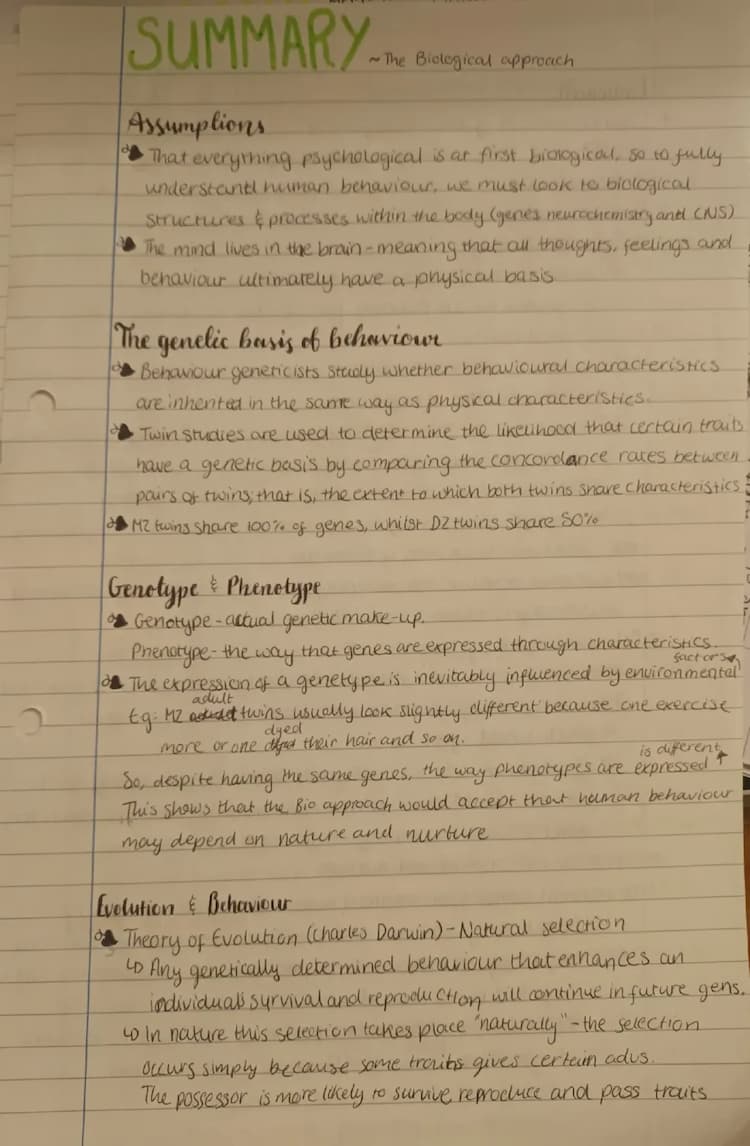 SUMMARY ~ The Biological approach
Assumptions
That everything psychological is at first biological, so to fully
understand human behaviour, we must look to biological
structures & processes within the body (genes neurochemistry and CNS)
The mind lives in the brain - meaning that all thoughts, feelings and
behaviour ultimately have a physical basis
The genetic basis of behaviour
Behaviour geneticists study whether behavioural characteristics
are inherited in the same way as physical characteristics.
Twin studies are used to determine the likelihood that certain traits
have a genetic basis by comparing the concordance rates between
pairs of twins, that is, the extent to which both twins share characteristics
MZ twins share 100% of genes, whilst DZ twins share 50%
Genotype & Phenotype
Genotype - actual genetic make-up.
Phenotype - the way that genes are expressed through characteristics.
The expression of a genetype is inevitably influenced by environmental factors
Eg: MZ adult twins usually look slightly different because one exercise
more or one dyed their hair and so on.
So, despite having the same genes, the way phenotypes are expressed is different
This shows that the Bio approach would accept that human behaviour
may depend on nature and nurture
Evolution & Behaviour
Theory of Evolution (Charles Darwin) - Natural selection
Any genetically determined behaviour that enhances an
individual's survival and reproduction will continue in future gens.
In nature this selection takes place "naturally" - the selection
occurs simply because some traits gives certain advs.
The possessor is more likely to survive, reproduce and pass traits